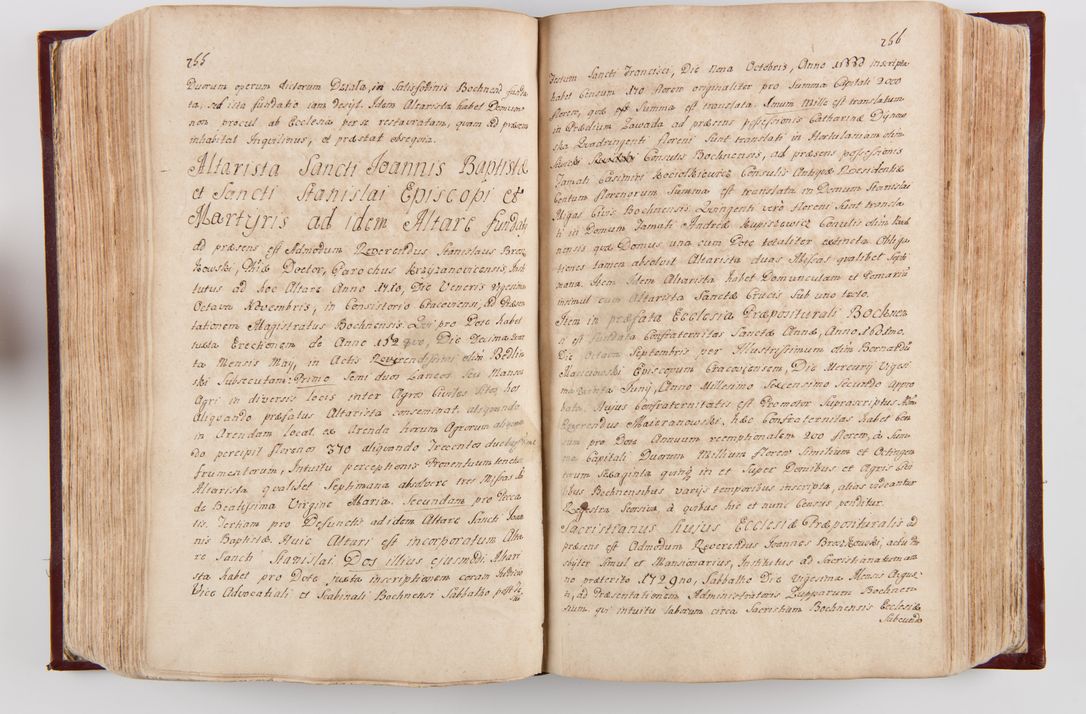 255
Duorum operum dictorum Dziala, in Salisfodinis Bochnen funda
ta, sed ista fundatio iam desijt. Idem Altarista habet Domum
non procul ab Ecclesia per se restauratam, quam ad præsens
inhabitat Inquilinus, et præstat obsequia.
Altarista Sancti Joannis Baptistæ
et Sancti Stanislai Episcopi et
Martyris ad idem Altare fundatus
ad præsens est Admodum Reverendus Stanislaus Broz
kowski, Phiæ Doctor, Parochus Krzyzanovicensis, Insti
tutus ad hoc Altare Anno 1710, Die Veneris Vigesima
Octava Novembris, in Consistorio Cracoviensi, Ad Præsen
tationem Magistratus Bochnensis. Qui pro Dote habet
iuxta Erectionem de Anno 1529no, Die Decima
ta Mensis Maij, in Actis Reverendissimi olim Bedlin
ski subsecutam: Primo Semi duos Laneos seu Mansos
Agri in diversis locis inter Agros Civiles sitos, hos
aliquando præfatus Altarista conseminat, aliquando
in Arendam locat, ex Arenda horum Agrorum aliquan
do percipit florenos 370 aliquando Trecentos
frumentorum, Intuitu perceptionis Proventuum tenetur
Altarista qualibet Septimana absolvere tres Missas 
de Beatissima Virgine Maria. Secundam pro Pecca
tis. Tertiam pro Defunctis ad idem Altare Sancti Joan
nis Baptistæ. Huic Altari est incorporatum Alta
re Sancti Stanislai. Dos illius eiusmodi. Altari
sta habet pro Dote, juxta inscriptionem coram Iudicio
Vice Advocatiali et Scabinali Bochnensi Sabbatho post
266
Festum Sancti Francisci, Die Nona Octobris, Anno inscripta
habet Censum 170 florem originaliter pro Summa Capitali 2000
florem, quæ Summa est translata. Imum Mille est translatum
in Prædium Zawada ad præsens possessionis Catharinæ Dynow
ska Quadringenti floreni sunt translati in Hortulaniam olim
Consulis Bochnensis, ad præsens possessionis
Famati Casimiri Kociolkiewicz Consulis Antiquæ Residentiæ
Centum florenorum Summa est translata in Domum Stanislai
Migas Civis Bochnensis. Quingenti verò floreni sunt transla
ti in Domum Famati Andreæ Kupiszewicz Consulis olim
nensis quæ Domus una cum Dote totaliter extincta. Obliga
tiones tamen absolvit Altarista duas Missas qualibet Septi
mana. Item Idem Altarista habet Domunculam et Pomarium
intimul cum Altarista Sanctæ Crucis sub uno tecto.
Item in præfata Ecclesia Præpositurali Bochnen
si est fundata Confraternitas Sanctæ Annæ, Anno 1601mo.
Die Octava Septembris per Illustrissimum olim Bernardum
Macieiowski Episcopum Cracoviensem, Die Mercurij Vigesi
ma Junij, Anno Millesimo Sexcensimo Secundo appro
bata. Hujus Confraternitatis est Promotor Suprascriptus Adm
Reverendus Materanowski. hæc Confraternitas habet Cen
sum pro Dote Annuum reemptionalem 200 florem, à Sum
ma Capitali Duorum Millium florem Similium et Octingen
torum Sexaginta quinq in et super Domibus et Agris Civi
libus Bochnensibus varijs temporibus inscripta, alias videantur
Regestra Seorsiva à quibus hic et nunc Census penditur.
Sacristianus hujus Ecclesiæ Præposituralis ad
præsens est Admodum Reverendus Joannes Brozkowski, actu Præ
sbyter Simul et Mansionarius, Institutus ad Sacristianatum an
no præterito 1729no, Sabbatho Die Vigesima Mensis Augus
ti, ad Præsentationem Administratoris Zupparum Bochnen
sium, qui intuitu laborum circa Sacristiam Bochnensis Ecclesiæ
Subeundo